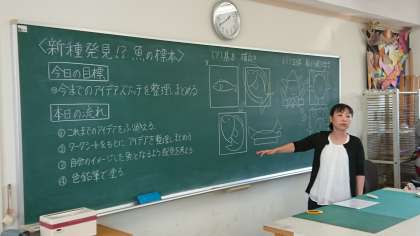 〈新種発見!? 魚の標本〉
今日の目標
◎今までのアイデアスケッチを整理しまとめる
本日の流れ
① これまでのアイデアをふりかえる
② ワークシートをもとにアイデアを整理しまとめる
③ 自分のイメージした魚となるよう
④ 色鉛筆で塗る
基本